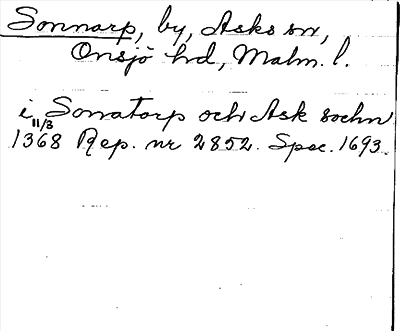 Sonnarp, by, Asks sn,
Onsjö hd, Malm. l.
i Sonnatorp och Ask sochn
11/3
1368 Rep. nr 2852. Spec. 1693.